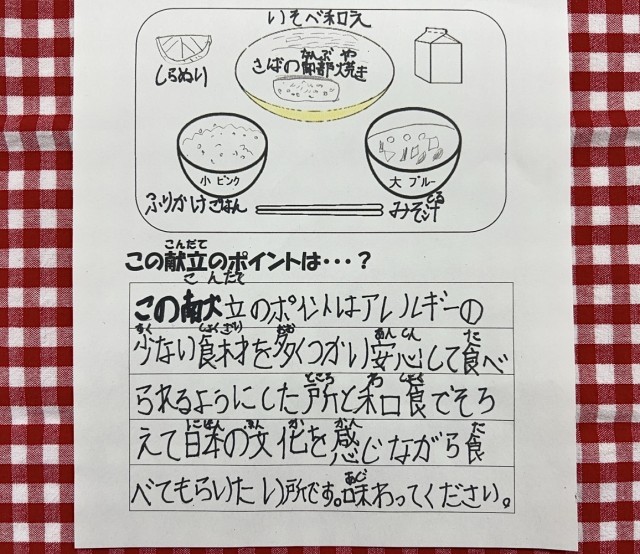 いそべ和え
しらぬり
かんぶ や
さばの幹部焼き
小 ピンク
大 ブルー
ふりかけごはん
みそ汁
こんだて
この献立のポイントは・・・？
こんだて
この献立のポイントはアレルギーの
少ない食材を多くつかい安心して食べ
られるようにした所と和食でそろ
えて日本の文化を感じながら食
べてもらいたい所です。味わってください。